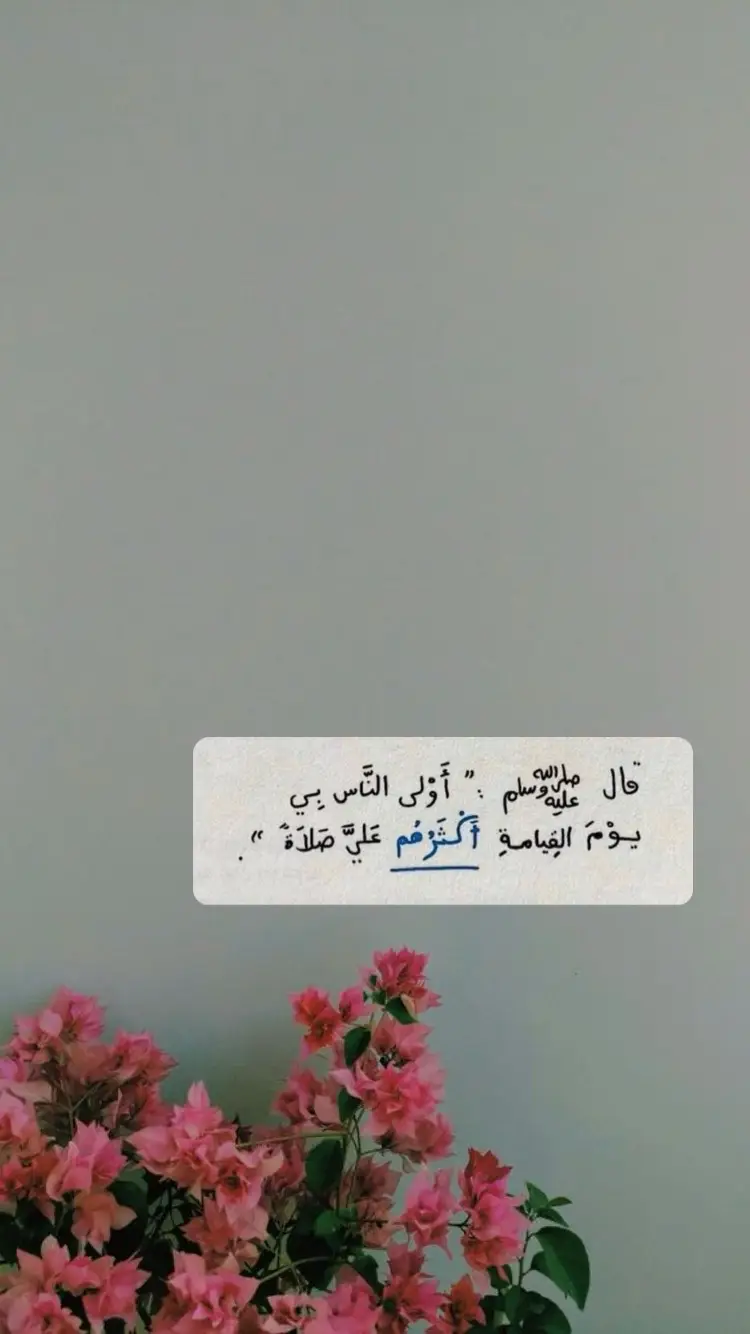 قال ﷺ :" أَوْلى النَّاس بِي
يـوْمَ القِيامـةِ أَكْثَرُهُم عَليَّ صَلاَةً ".